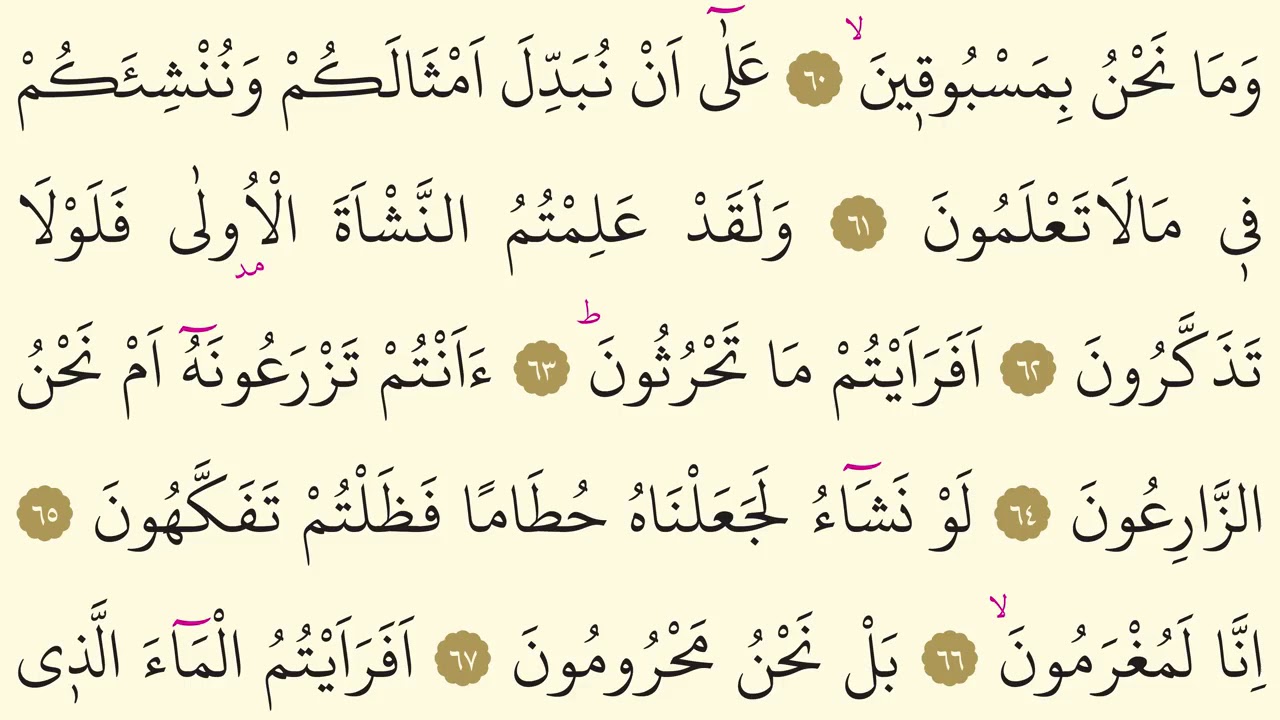 وَمَا نَحْنُ بِمَسْبُوقٖينَۙ ٦٠ عَلٰٓى اَنْ نُبَدِّلَ اَمْثَالَكُمْ وَنُنْشِئَكُمْ
فٖي مَالَاتَعْلَمُونَ ٦١ وَلَقَدْ عَلِمْتُمُ النَّشْاَةَ الْاُولٰى فَلَوْلَا
مد
تَذَكَّرُونَ ٦٢ اَفَرَاَيْتُمْ مَا تَحْرُثُونَؕ ٦٣ ءَاَنْتُمْ تَزْرَعُونَهُٓ اَمْ نَحْنُ
الزَّارِعُونَ ٦٤ لَوْ نَشَٓاءُ لَجَعَلْنَاهُ حُطَامًا فَظَلْتُمْ تَفَكَّهُونَ ٦٥
اِنَّا لَمُغْرَمُونَۙ ٦٦ بَلْ نَحْنُ مَحْرُومُونَ ٦٧ اَفَرَاَيْتُمُ الْمَٓاءَ الَّذٖى